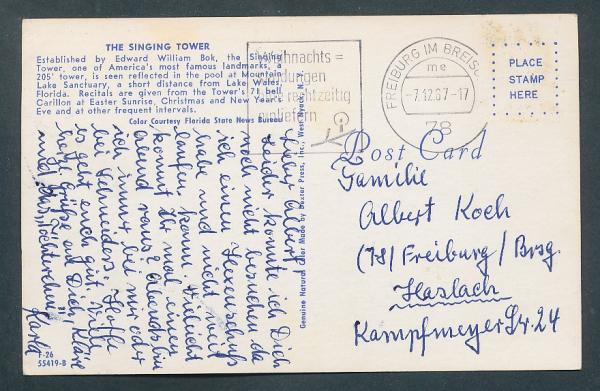 THE SINGING TOWER
Established by Edward William Bok, the Singing
Tower, one of America's most famous landmarks, a
205' tower, is seen reflected in the pool at Mountain
Lake Sanctuary, a short distance from Lake Wales,
Florida. Recitals are given from the Tower's 71 bell
Carillon at Easter Sunrise, Christmas and New Year's
Eve and at other frequent intervals.
Color Courtesy Florida State News Bureau
Weihnachts =
rechtzeitig
einliefern
FREIBURG IM BREISG
me
-7.12.67-17
78
PLACE
STAMP
HERE
Post Card
Genuine Natural Color Made by Dexter Press, Inc., West Nyack, N.Y.
Lieber Albert!
Leider konnte ich Dich
noch nicht besuchen da
ich einen Hexenschuß
habe und nicht viel
laufen kann. Vielleicht
kommt Ihr mal einen
Abend raus? Abends bin
ich immer bei mir oder
bei Schneiders. Hoffe
es geht euch gut. Viele
herzl. Grüße an Dich, Kläre
und das "Töchterchen"
Karla
Familie
Albert Koch
(78) Freiburg/Brsg.
Haslach
Kampfmeyer Str. 24
F-26
55419-B